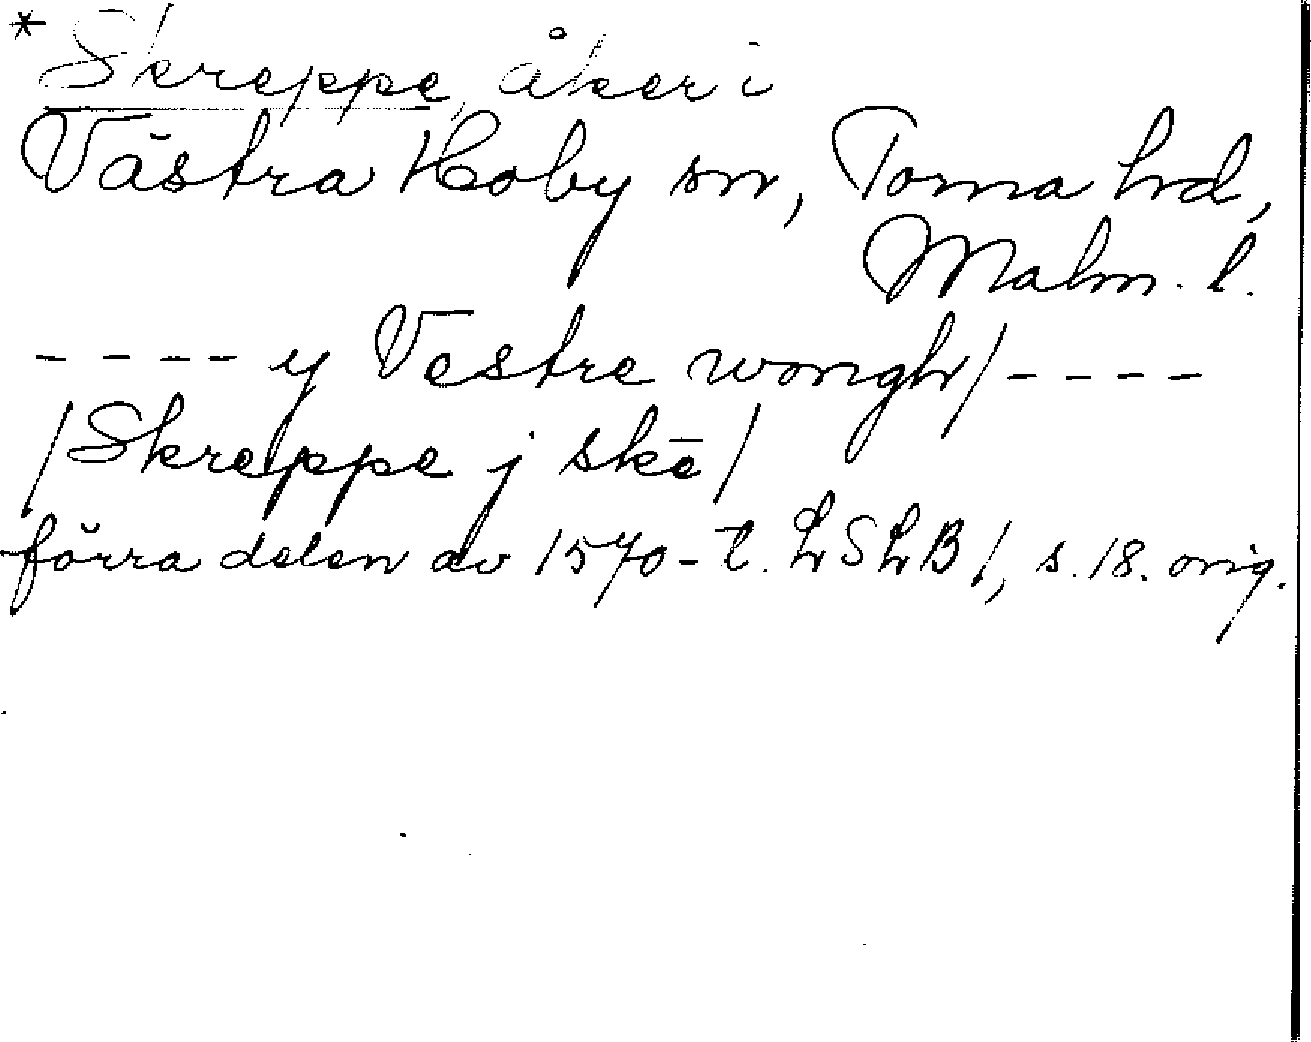 * Skreppe, åker i
Västra Hoby sn, Torna hrd,
Malm. l.
- - - - y Vestre wongh / - - - -
/ Skreppe j skē /
förra delen av 1570-t. LSLB 1, s. 18. orig.